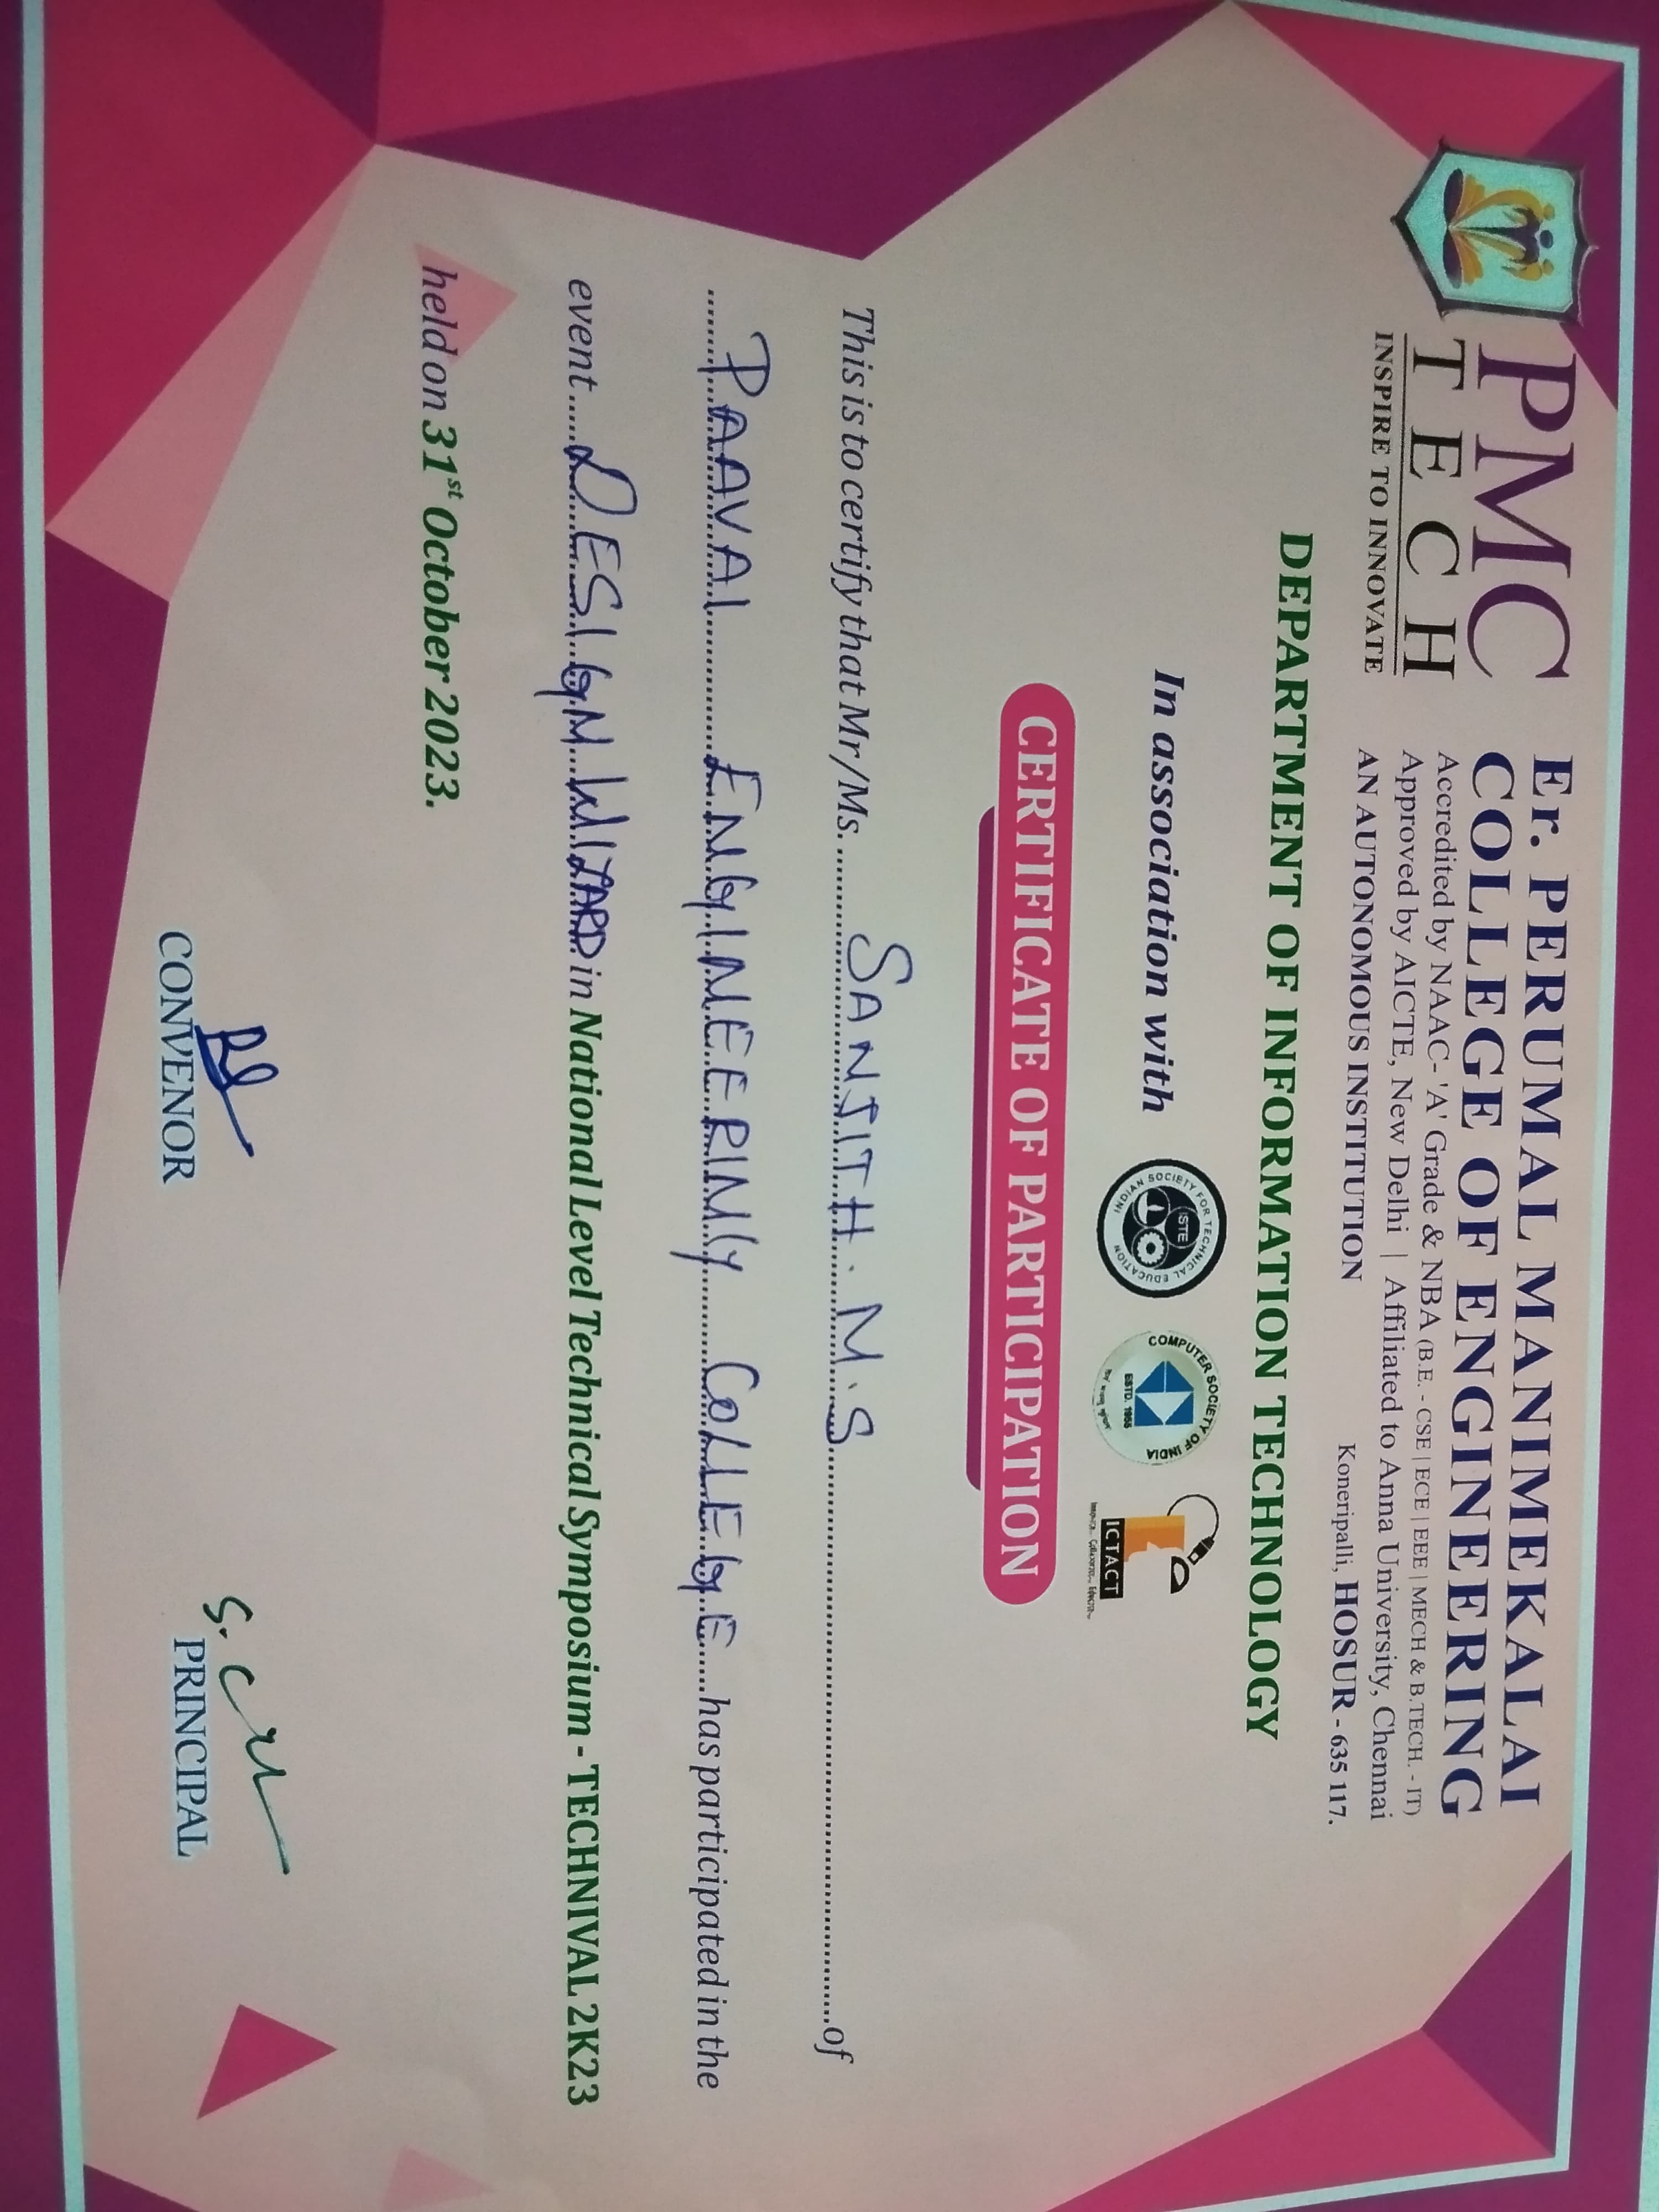 PMC
TECH
INSPIRE TO INNOVATE
Er. PERUMAL MANIMEKALAI
COLLEGE OF ENGINEERING
Accredited by NAAC- 'A' Grade & NBA (B.E. - CSE | ECE | EEE | MECH & B.TECH. - IT)
Approved by AICTE, New Delhi | Affiliated to Anna University, Chennai
AN AUTONOMOUS INSTITUTION Koneripalli, HOSUR - 635 117.
DEPARTMENT OF INFORMATION TECHNOLOGY
In association with
INDIAN SOCIETY FOR TECHNICAL EDUCATION
ISTE
COMPUTER SOCIETY OF INDIA
ESTD. 1965
ICTACT
CERTIFICATE OF PARTICIPATION
This is to certify that Mr/Ms. SANJITH. M.S of
PAAVAI ENGINEERING COLLEGE has participated in the
event DESIGN WIZARD in National Level Technical Symposium - TECHNIVAL 2K23
held on 31st October 2023.
CONVENOR
S.
PRINCIPAL